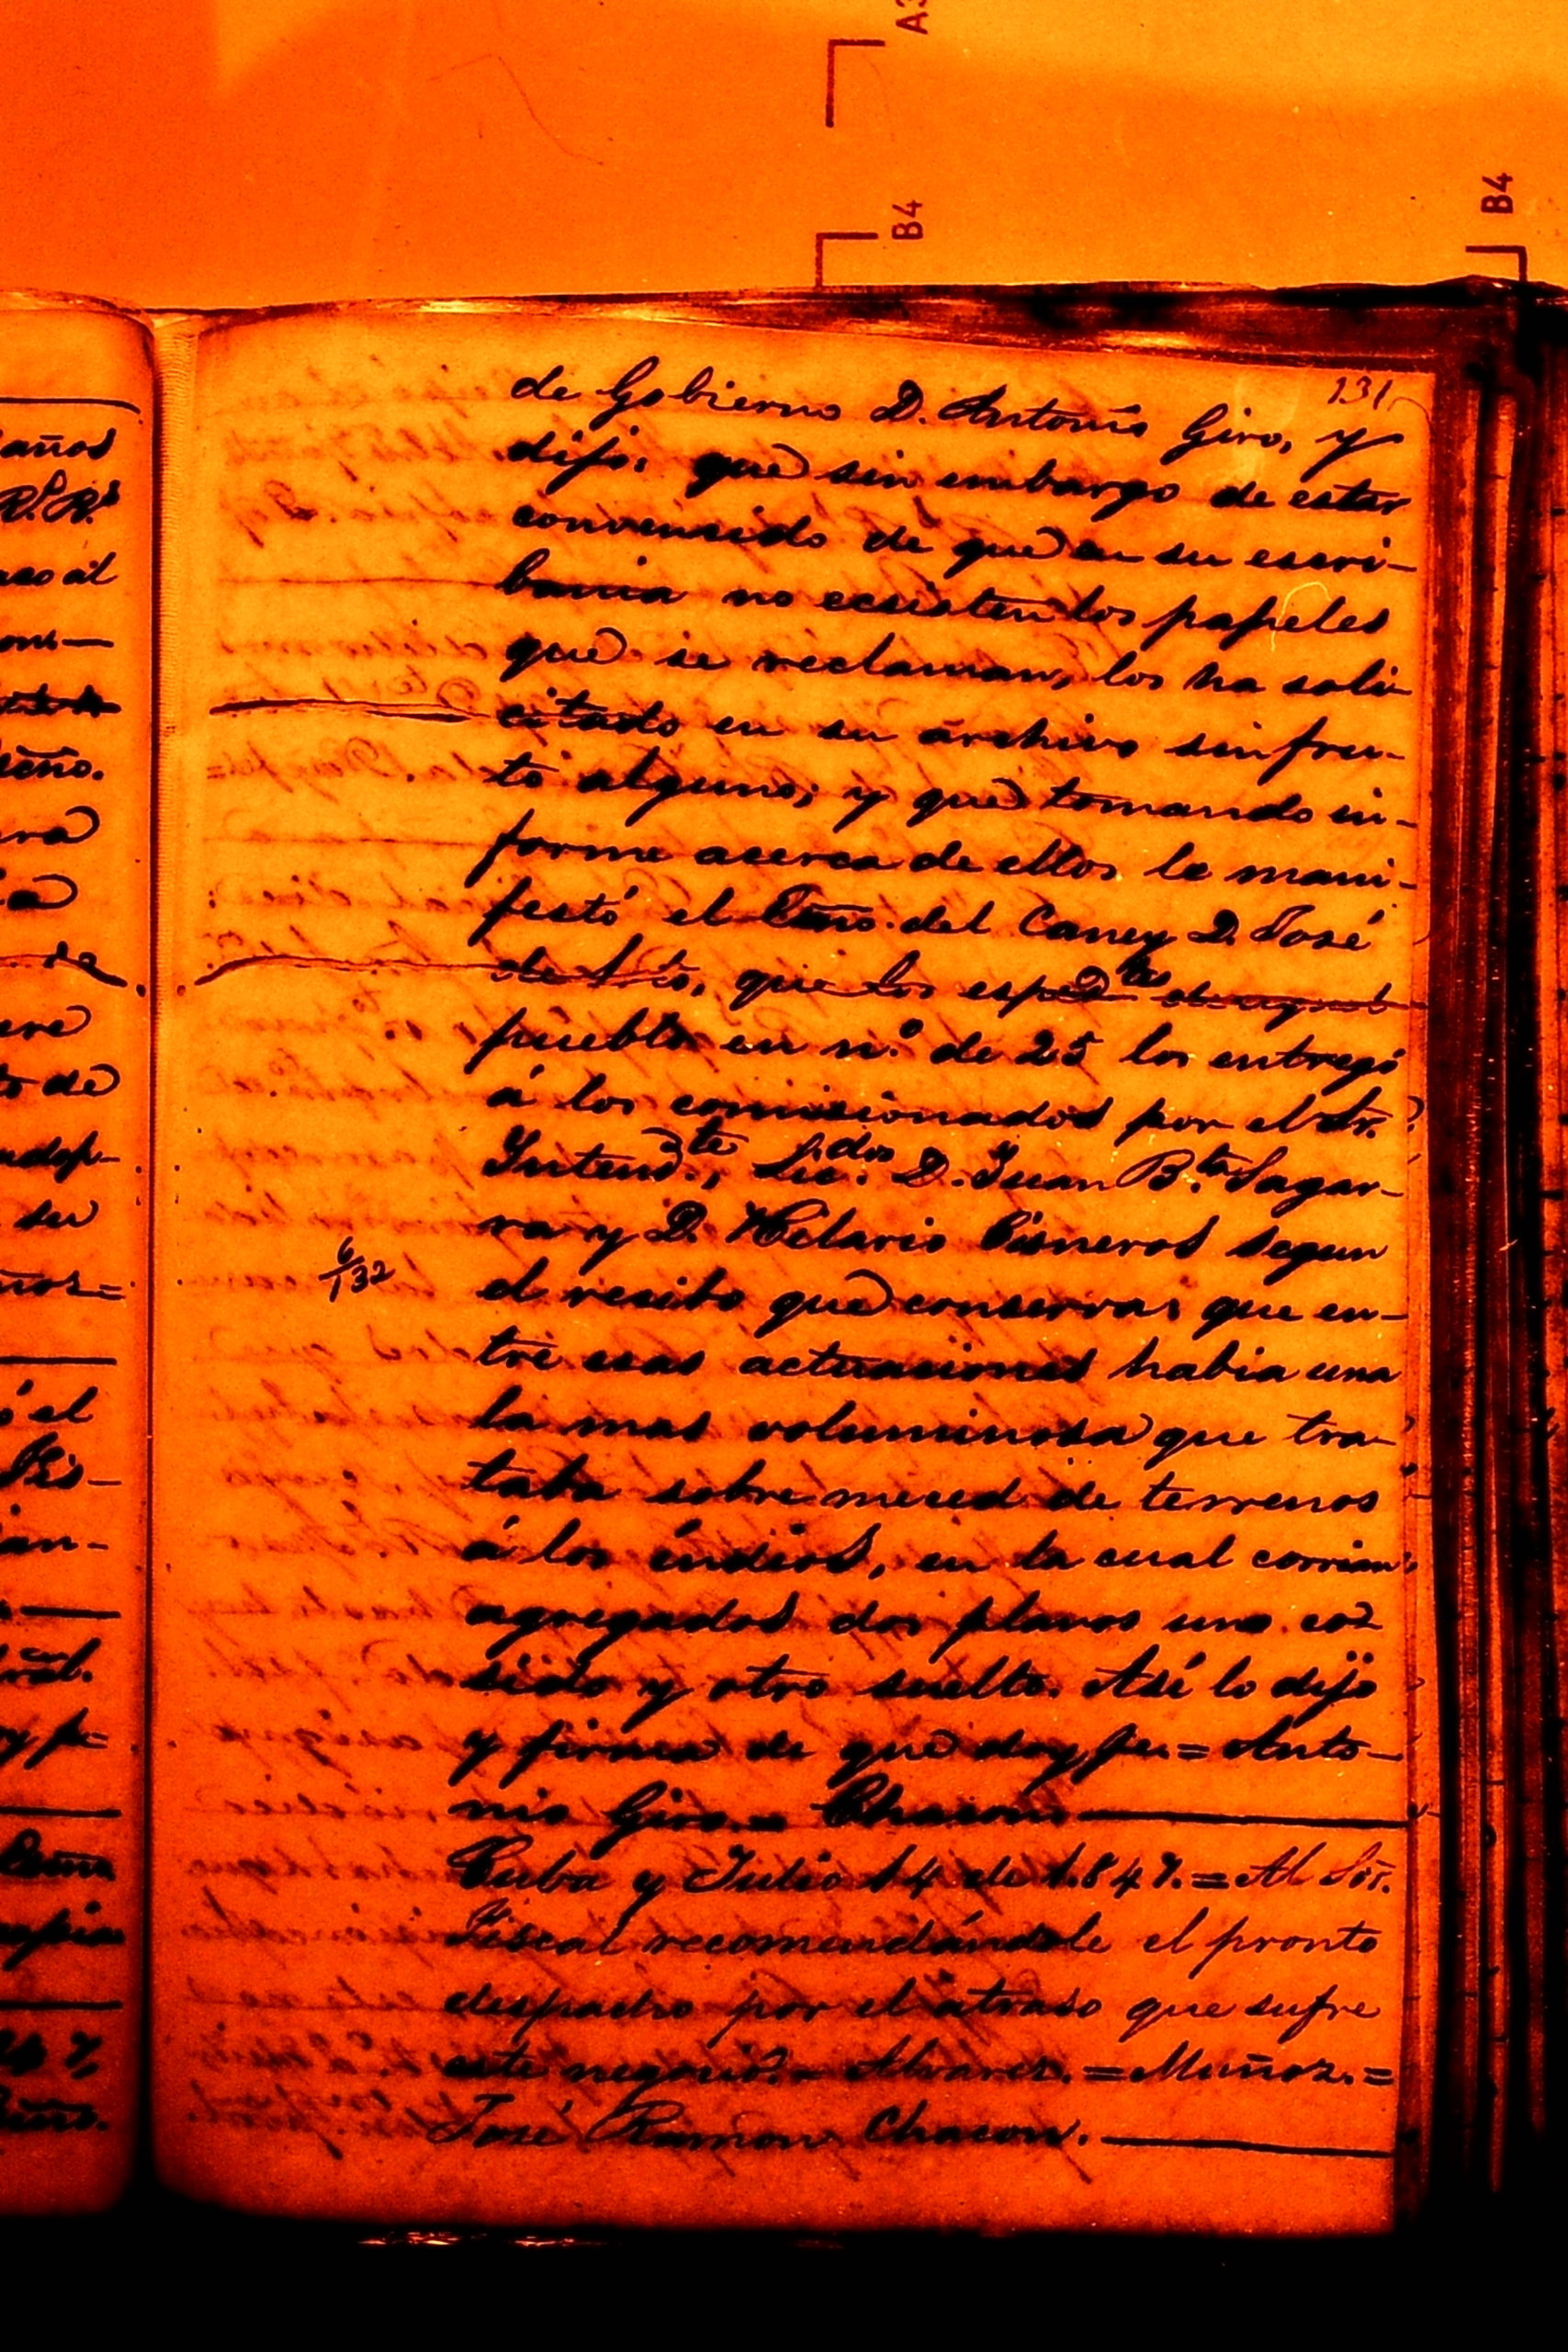 A3
B4
B4
131
de Gobierno D. Antonio Giro, y
dijo: que sin embargo de estar
convensido de que en su escri-
bania no ecsisten los papeles
que se reclaman, los ha soli-
citado en su archivo sin fru-
to alguno; y que tomando in-
forme acerca de ellos le mani-
festó el Esño. del Caney D. José
de que los esped.tes de aquel
pueblo en n.º de 25 los entregó
á los comisionados por el Sr.
Intend.te, Lic.dos D. Juan B.ta Sagar-
ra y D. Hilario Cisneros segun
6/132
el resibo que conserva; que en-
tre esas actuasiones habia una
la mas voluminosa que tra-
taba sobre mersed de terrenos
á los índios, en la cual corrian
agregados dos planos uno co-
sido y otro suelto. Así lo dijo
y firma de que doy fe. = Anto-
nio Giro. = Chacon.
Cuba y Julio 14 de 1.847. = Al Sor.
Fiscal recomendándole el pronto
despacho por el atraso que sufre
este negocio. = Alvarez. = Muñoz. =
José Ramon Chacon.
años
R.s R.s
eño.
ra
a
de
ere
to de
adop-
su
ñoz =
ó el
Ris-
an-
y fe
opia